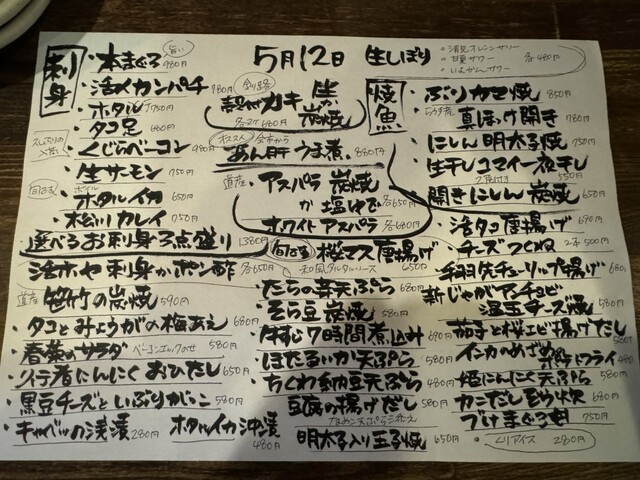 5月12日
生しぼり
・清見オレンジサワー
・甘夏サワー
・いよかんサワー
各480円
刺身
・本まぐろ 旨い 980円
・活〆カンパチ 780円
・ホタル 750円
・タコ足 680円
・くじらベーコン 980円
・生サーモン 750円
・ボイルホタルイカ 650円
・松川カレイ 750円
選べるお刺身3点盛り 1380円
釧路
殻付カキ 生か炭焼
各2ケ680円
オススメ 余市から
あん肝うま煮 880円
道産
・アスパラ 炭焼か塩ゆで 各650円
ホワイトアスパラ 各680円
焼魚
・ぶりカマ焼 850円
・真ほっけ開き 780円
・にしん明太子焼 750円
・生干しコマイ一夜干し 2尾付き 550円
・開きにしん炭焼 650円
活ホヤ刺身かポン酢 各650円
道産
笹竹の炭焼 590円
・タコとみょうがの梅あえ 680円
・春菜のサラダ ベーコンエッグのせ 580円
・行者にんにくおひたし 650円
・黒豆チーズといぶりがっこ 580円
・キャベツの浅漬 280円
ホタルイカ沖漬 480円
旬です 桜マス唐揚げ
和風タルタルソース 650円
・たらの芽天ぷら 680円
・そら豆炭焼 580円
・牛すじ7時間煮込み 690円
・ほたるいか天ぷら 580円
・ちくわ納豆天ぷら 480円
豆腐の揚げだし 580円
明太子入り玉子焼 650円
・活タコ唐揚げ 690円
・チーズつくね 2本500円
・手羽先チューリップ揚げ 660円
新じゃがアンチョビ温玉チーズ焼 580円
茄子と桜エビ揚げだし 580円
インカのめざめフライ 480円
姫にんにく天ぷら 550円
・カニだしぞう炊 680円
づけまぐろ丼 750円
・ユリアイス 280円